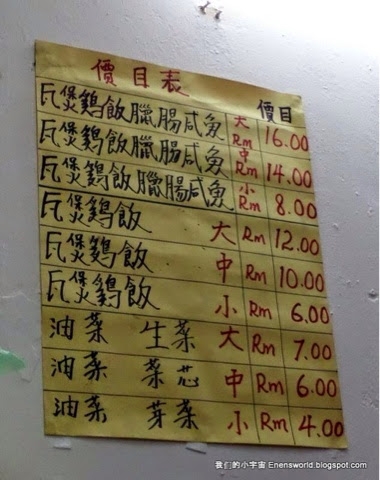 價目表
價目
瓦煲鷄飯臘腸咸魚 大 Rm 16.00
瓦煲鷄飯臘腸咸魚 中 Rm 14.00
瓦煲鷄飯臘腸咸魚 小 Rm 8.00
瓦煲鷄飯 大 Rm 12.00
瓦煲鷄飯 中 Rm 10.00
瓦煲鷄飯 小 Rm 6.00
油菜 生菜 大 Rm 7.00
油菜 菜芯 中 Rm 6.00
油菜 芽菜 小 Rm 4.00
我们的小宇宙 Enensworld.blogspot.com